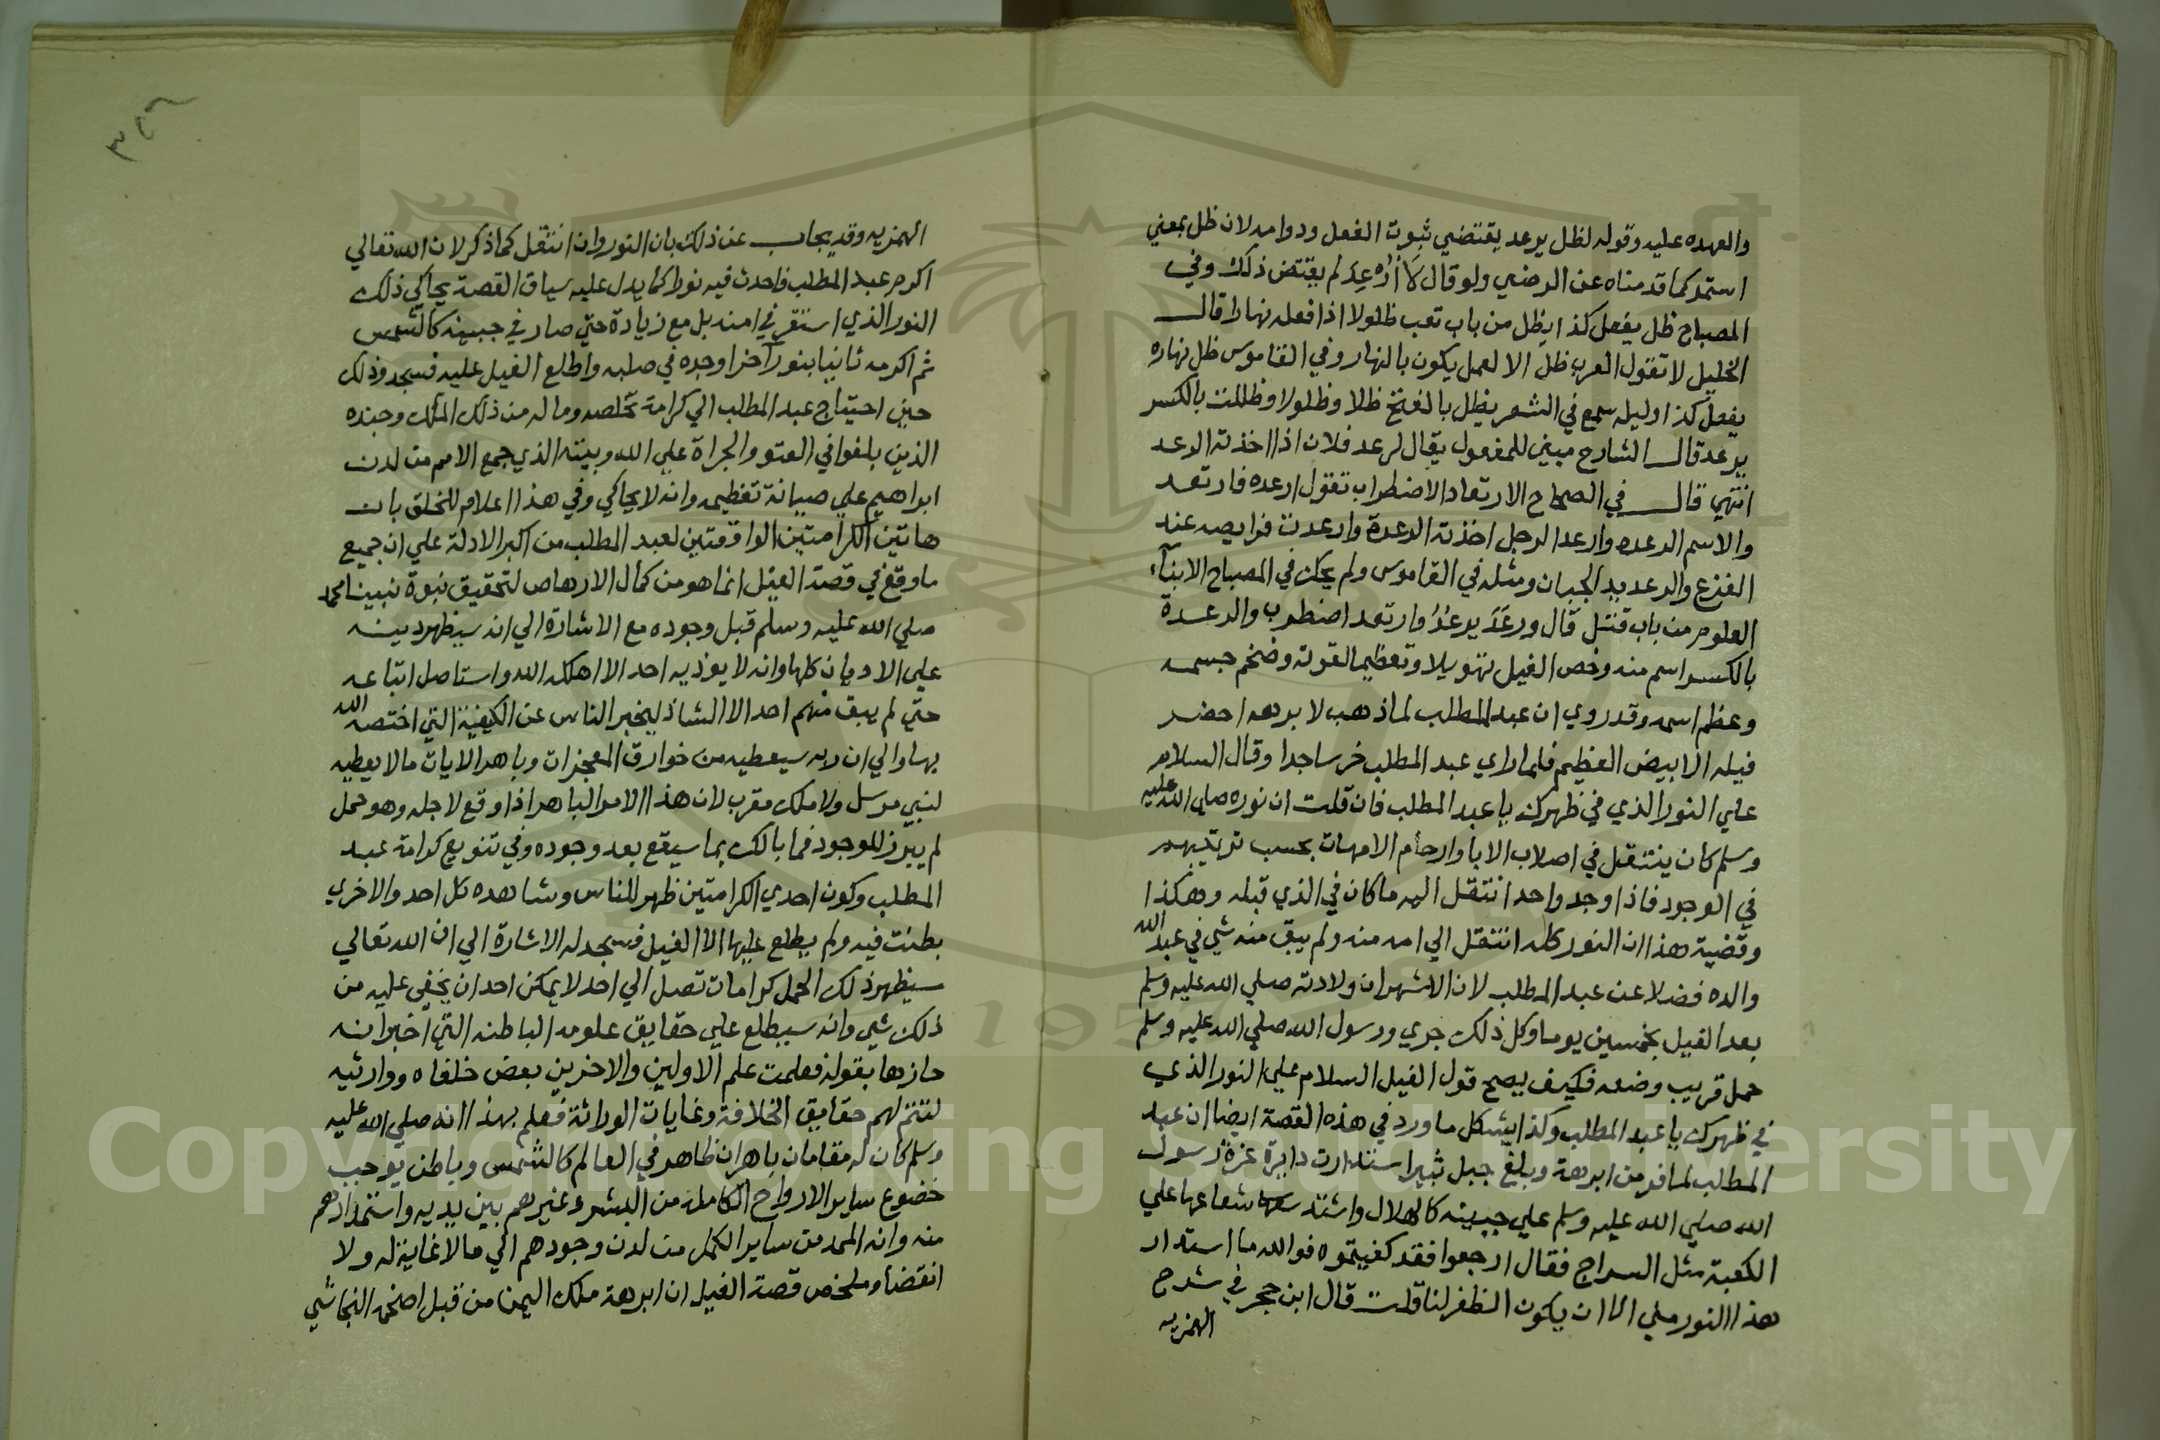 والعهده عليه وقوله لظل يرعد يقتضي ثبوت الفعل ودوامه لان ظل بمعني
استمر كما قدمناه عن الرضي ولو قال لأُرْعِدَ لم يقتض ذلك وفي
المصباح ظل يفعل كذا يظل من باب تعب ظلولا اذا فعله نهارا قال
الخليل لا تقول العرب ظل الا لعمل يكون بالنهار وفي القاموس ظل نهاره
يفعل كذا وليله سمع في الشعر يظل بالفتح ظلا وظلولا وظللت بالكسر
يرعد قال الشارح مبني للمفعول يقال رعد فلان اذا اخذته الرعد
انتهي قال في الصحاح الارتعاد الاضطراب تقول ارعده فارتعد
والاسم الرعده وارعد الرجل اخذته الرعدة وارعدت فرايصه عند
الفزع والرعديد الجبان ومثله في القاموس ولم يحك في المصباح الا بناء
المعلوم من باب قتل قال ورعَدَ يرعُدُ وارتعد اضطرب والرعدة
بالكسر اسم منه وخص الفيل تهويلا وتعظيما لقوته وضخم جسمه
وعظم اسمه وقد روي ان عبد المطلب لما ذهب لابرهه احضر
فيله الابيض العظيم فلما راي عبد المطلب خر ساجدا وقال السلام
علي النور الذي في ظهرك يا عبد المطلب فان قلت ان نوره صلي الله عليه
وسلم كان ينتقل في اصلاب الابا وارحام الامهات بحسب ترتيبهم
في الوجود فاذا وجد واحد انتقل اليه ما كان في الذي قبله وهكذا
وقضية هذا ان النور كله انتقل الي امه منه ولم يبق منه شي في عبد الله
والده فضلا عن عبد المطلب لان الاشهر ان ولادته صلي الله عليه وسلم
بعد الفيل بخمسين يوما وكل ذلك جري ورسول الله صلي الله عليه وسلم
حمل قريب وضعه فكيف يصح قول الفيل السلام علي النور الذي
في ظهرك يا عبد المطلب وكذا يشكل ما ورد في هذه القصة ايضا ان عبد
المطلب لما فر من ابرهة وبلغ جبل ثبير استدارت دايرة غرة رسول
الله صلي الله عليه وسلم علي جبينه كالهلال واشتد شعاعها علي
الكعبة مثل السراج فقال ارجعوا فقد كفيتموه فوالله ما استدار
هذا النور مني الا ان يكون الظفر لنا قلت قال ابن حجر في شرح
الهمزيه
٣٥٦
الهمزيه وقد يجاب عن ذلك بان النور وان انتقل كما ذكر لان الله تعالي
اكرم عبد المطلب فاحدث فيه نورا كما يدل عليه سياق القصة يحاكي ذلك
النور الذي استقر في امنه بل مع زيادة حتي صار في جبينه كالشمس
ثم اكرمه ثانيا بنور آخر اوجده في صلبه واطلع الفيل عليه فسجد وذلك
حين احتياج عبد المطلب الي كرامة تخلصه وماله من ذلك الملك وجنده
الذين بلغوا في العتو والجراة علي الله وبيته الذي جمع الامم من لدن
ابراهيم علي صيانة تعظيمه وانه لا يحاكي وفي هذا اعلام للخلق بان
هاتين الكرامتين الواقعتين لعبد المطلب من اكبر الادلة علي ان جميع
ما وقع في قصة الفيل انما هو من كمال الارهاص لتحقيق نبوة نبينا محمد
صلي الله عليه وسلم قبل وجوده مع الاشارة الي انه سيظهر دينه
علي الاديان كلها وانه لا يوذيه احد الا اهلكه الله واستاصل اتباعه
حتي لم يبق منهم احد الا الشاذ ليخبر الناس عن الكيفية التي اختصه الله
بها والي ان ربه سيعطيه من خوارق المعجزات وباهر الايات ما لا يعطيه
لنبي مرسل ولا ملك مقرب لان هذا الامر الباهر اذا وقع لاجله وهو حمل
لم يبرز للوجود فما بالك بما سيقع بعد وجوده وفي تنويع كرامة عبد
المطلب وكون احدي الكرامتين ظهر للناس وشاهده كل احد والاخري
بطنت فيه ولم يطلع عليها الا الفيل فسجد له الاشارة الي ان الله تعالي
سيظهر ذلك الحمل كرامات تصل الي احد لا يمكن احد ان يخفي عليه من
ذلك شي وانه سيطلع علي حقايق علومه الباطنه التي اخبر انه
حازها بقوله فعلمت علم الاولين والاخرين بعض خلفاه ووارثيه
لتتم لهم حقايق الخلافة وغايات الوراثة فعلم بهذا انه صلي الله عليه
وسلم كان له مقامان باهران ظاهر في العالم كالشمس وباطن يوجب
خضوع ساير الارواح الكامله من البشر وغيرهم بين يديه واستمدادهم
منه وانه الممد من ساير الكمل من لدن وجودهم الي ما لا غاية له ولا
انقضاء وملخص قصة الفيل ان ابرهة ملك اليمن من قبل اصحمه النجاشي
Copyright © King Saud University
1957